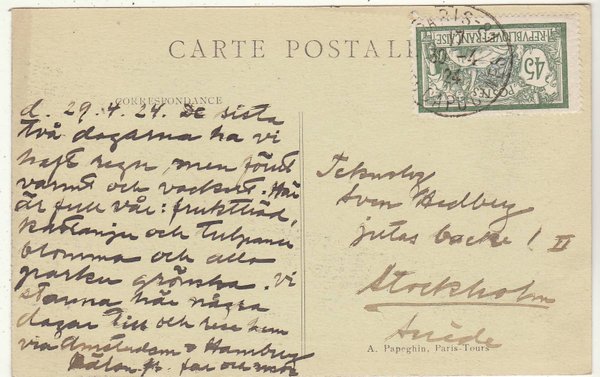 CARTE POSTALE
CORRESPONDANCE
d. 29.4.24. De sista
två dagarna ha vi
haft regn, men förut
varmt och vackert. Här
är full vår: fruktträd,
kastanjer och tulpaner
blomma och alla
parker grönska. Vi
stanna här några
dagar till och resa hem
via Amsterdam o Hamburg
Hälsn. fr. far och mor
PARIS-
17
30 -4
24
RÉPUBLIQUE FRANÇAISE
45c
POSTES
Sven Hedberg
Jutas backe 1 II
Stockholm
Suède
A. Papeghin, Paris-Tours